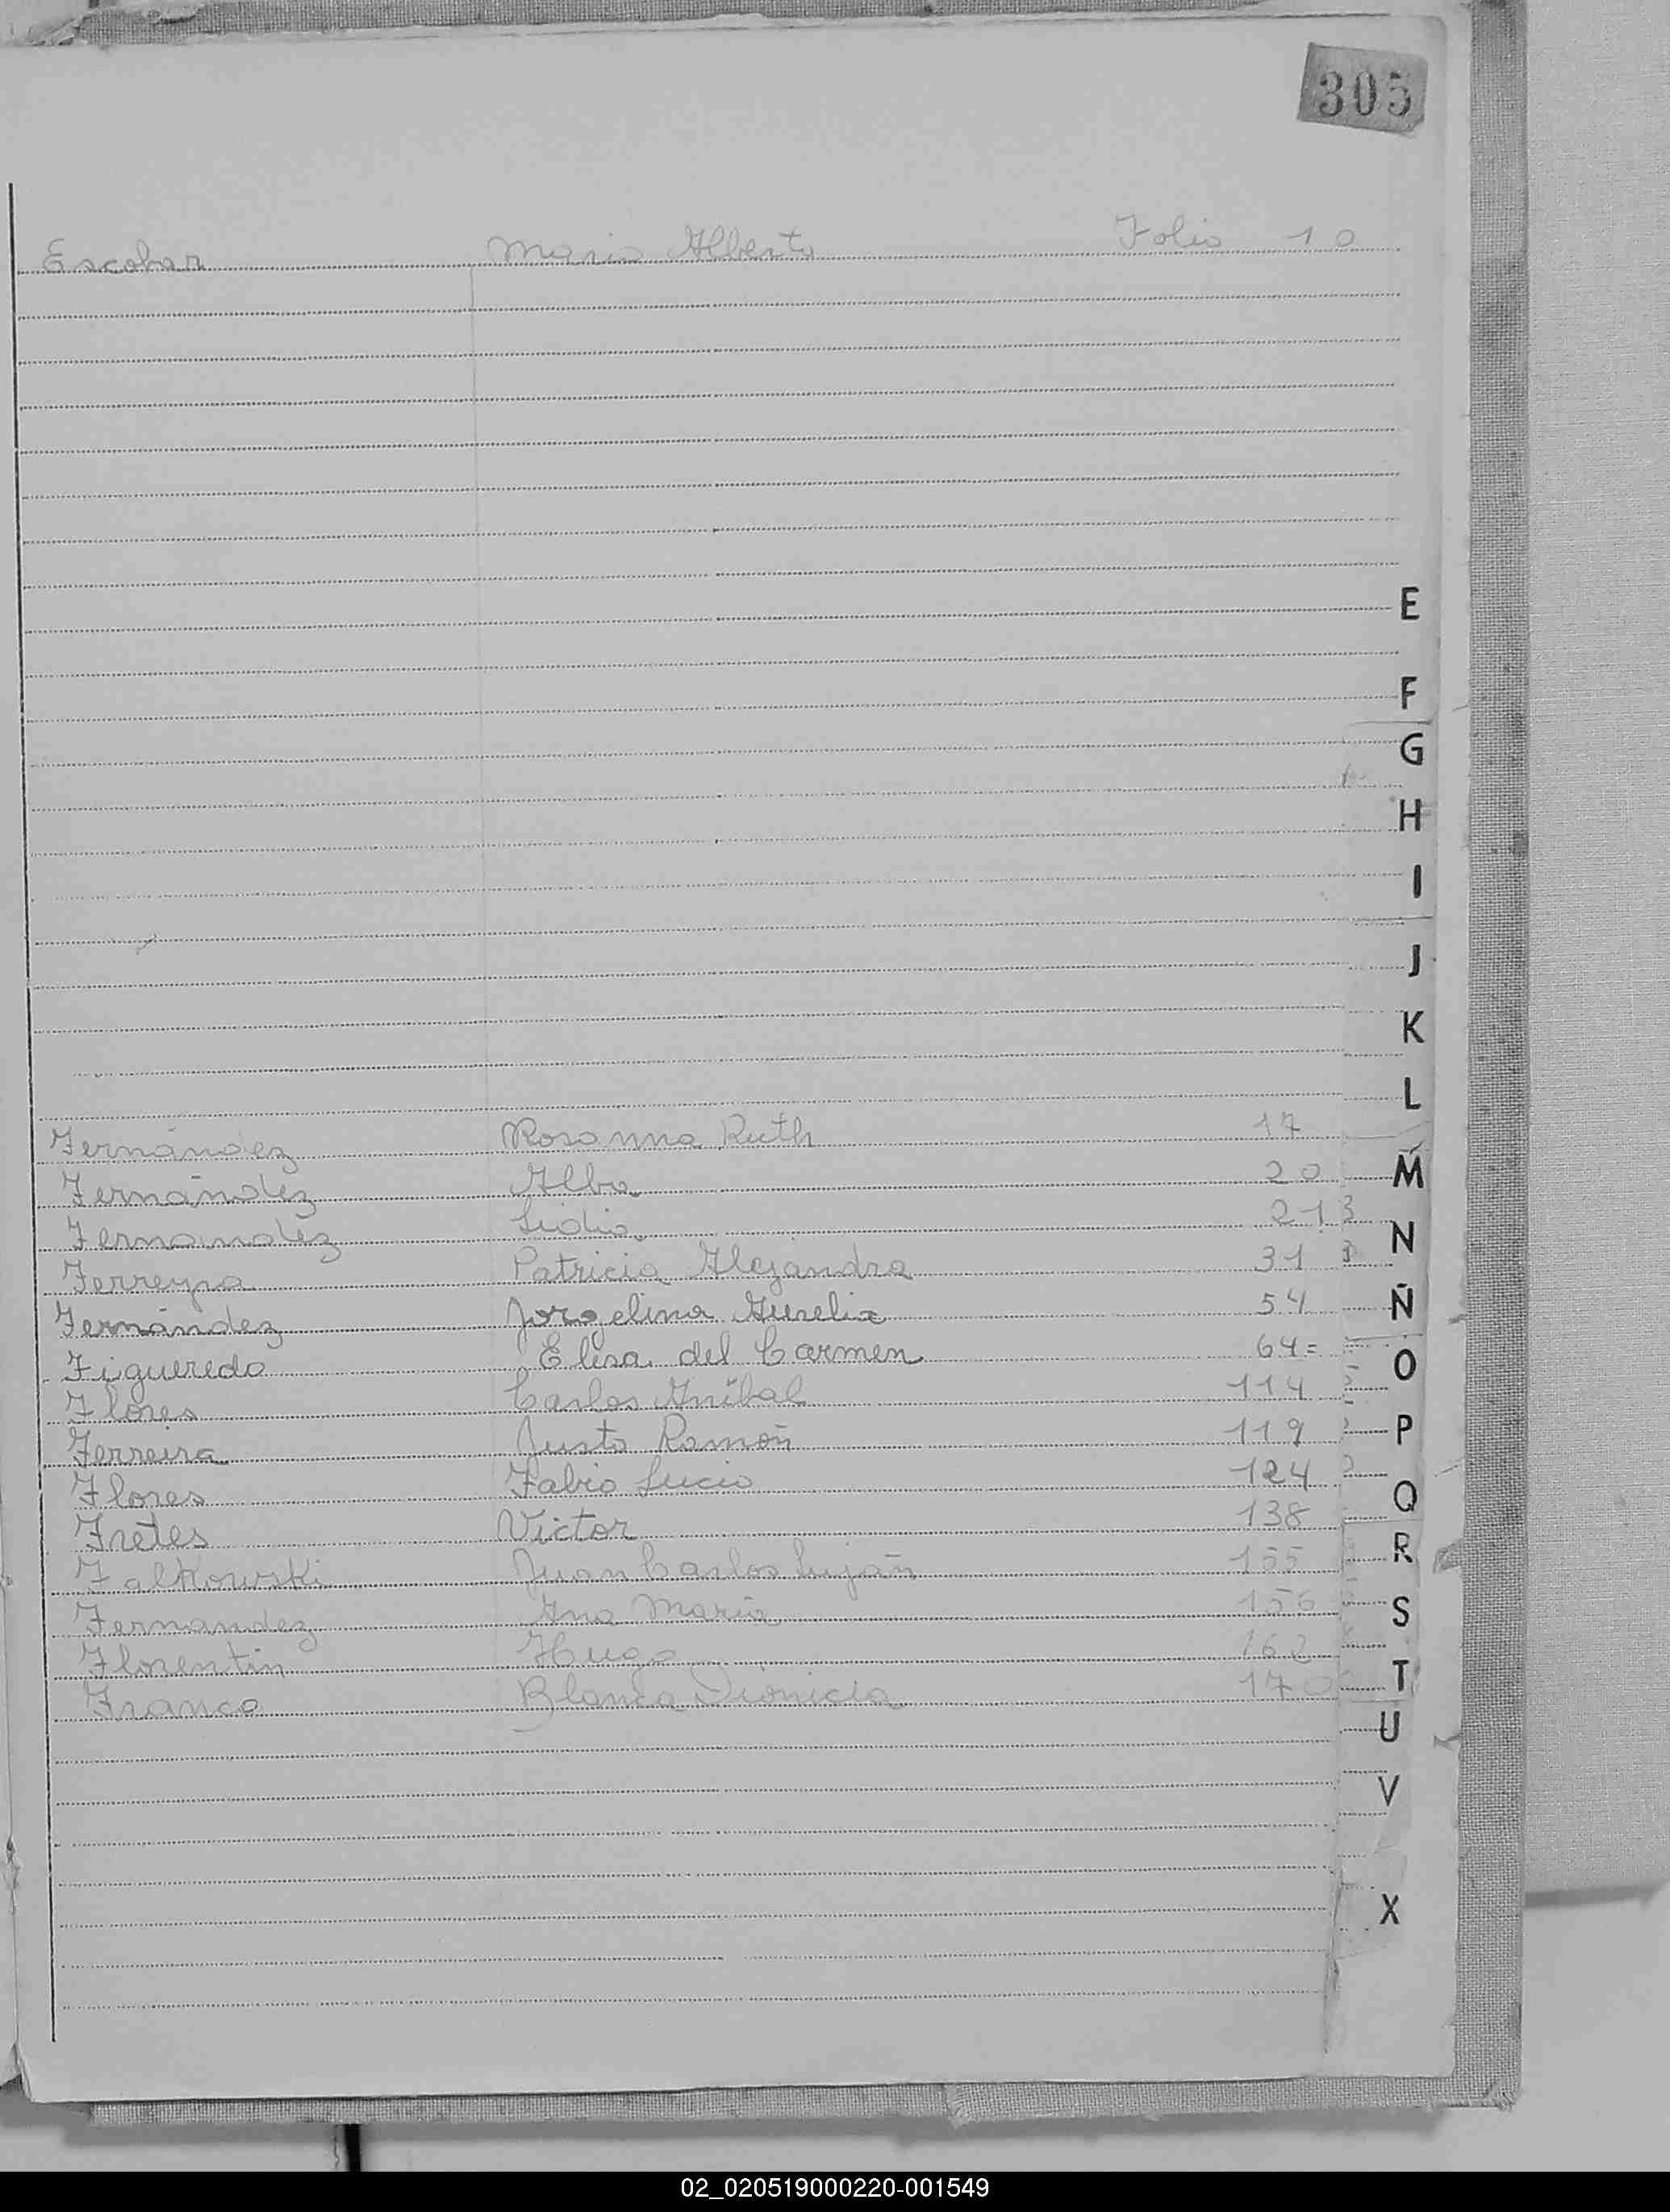 305
Escobar Mario Alberto Folio 10
E
F
G
H
I
J
K
L
Fernández Rosanna Ruth 17
Fernández Alba 20
M
Fernandéz Lidia 21
N
Ferreyra Patricia Alejandra 31
Fernández Jorgelina Aurelia 54
Ñ
Figueredo Elisa del Carmen 64=
O
Flores Carlos Aníbal 114
Ferreira Justo Ramón 119
P
Flores Fabio Lucio 124
Q
Fretes Victor 138
R
Falkowski Juan Carlos Luján 155
Fernandez Ana María 156
S
Florentin Hugo 162
T
Franco Blanca Dionicia 170
U
V
X
02_020519000220-001549